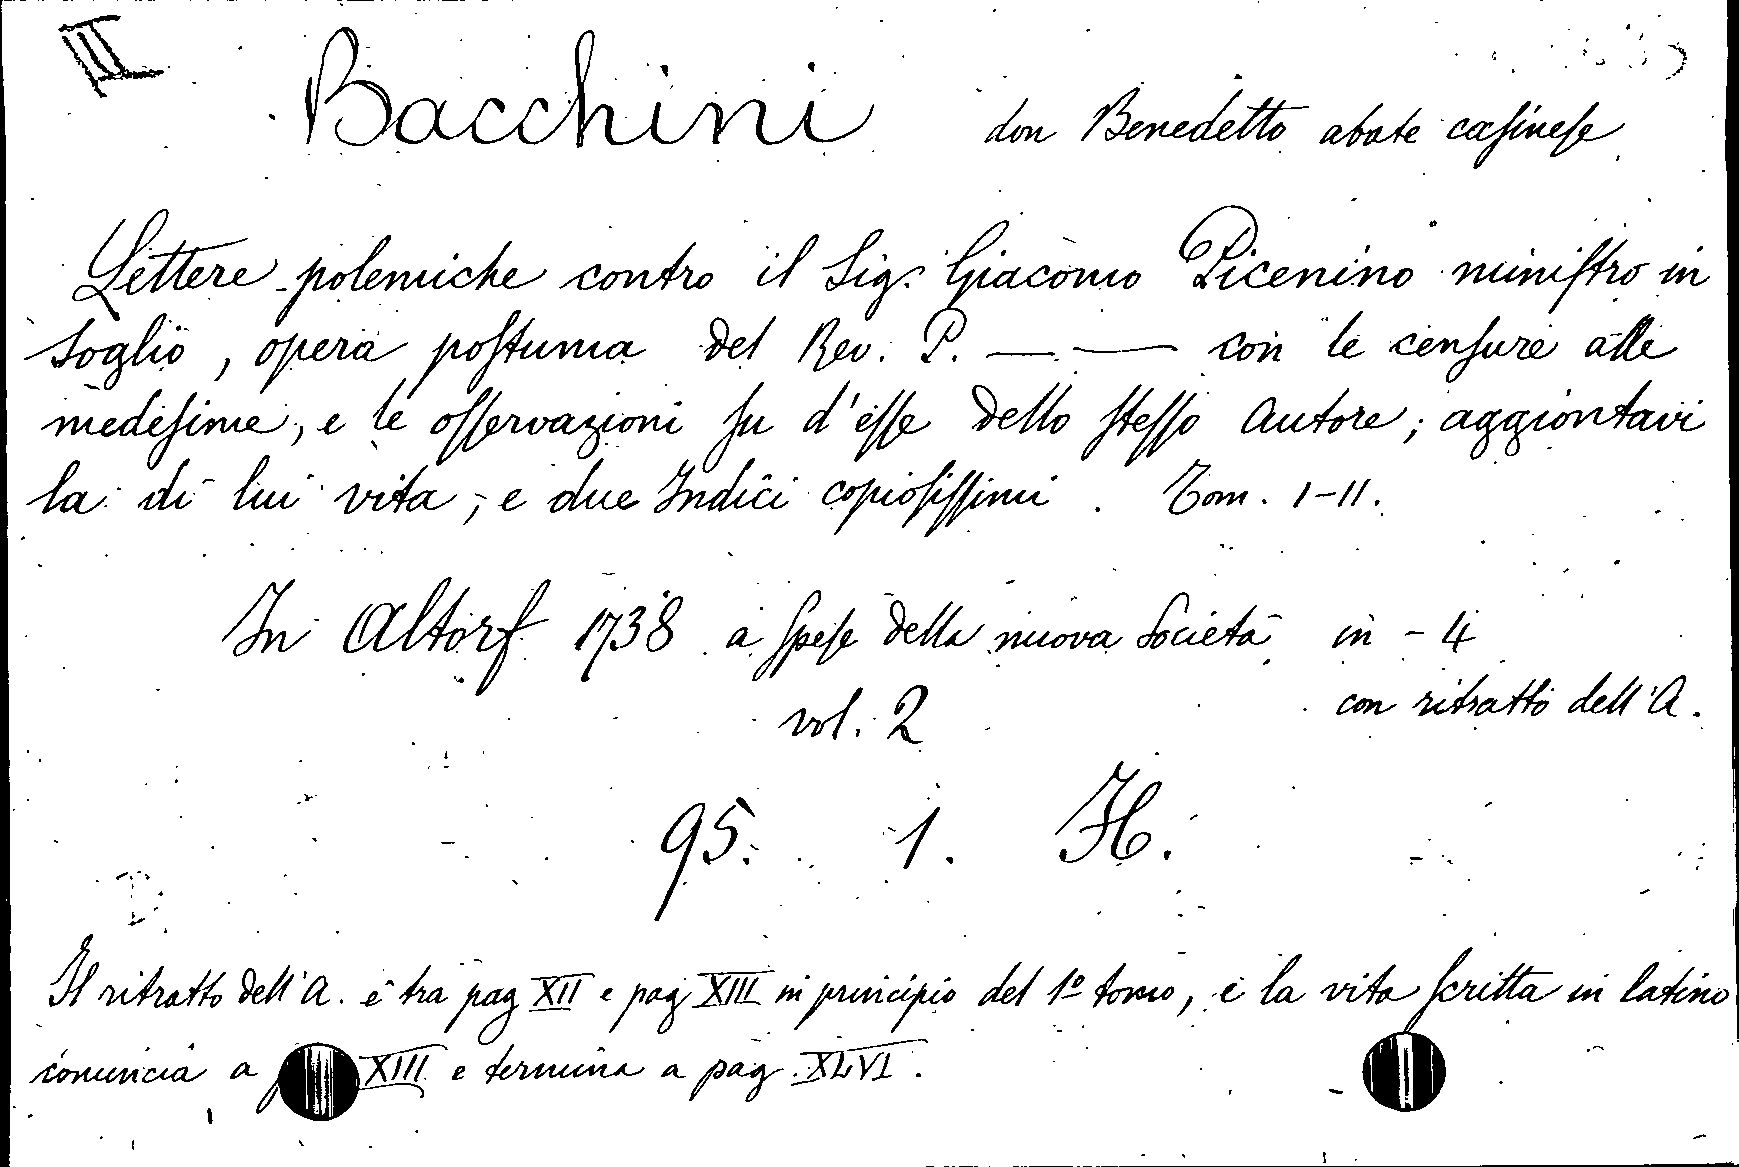 III
Bacchini don Benedetto abate casinese
Lettere polemiche contro il Sig. Giacomo Picenino ministro in
Soglio, opera postuma del Rev. P. — — con le censure alle
medesime, e le osservazioni su d'esse dello stesso Autore; aggiontavi
la di lui vita, e due Indici copiosissimi. Tom. I-II.
In Altorf 1738 a spese della nuova Società in - 4
vol. 2 con ritratto dell'A.
95. 1. H.
Il ritratto dell'A. è tra pag XII e pag XIII in principio del 1º tomo, e la vita scritta in latino
comincia a XIII e termina a pag. XLVI.